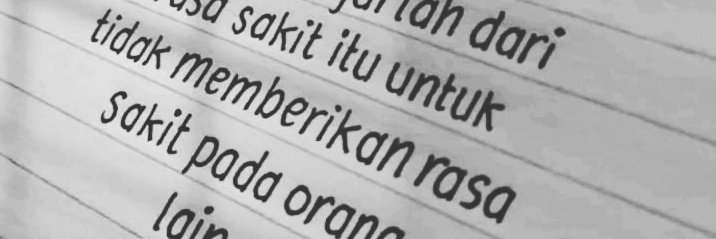 dari
rasa sakit itu untuk
tidak memberikan rasa
sakit pada orang
lain